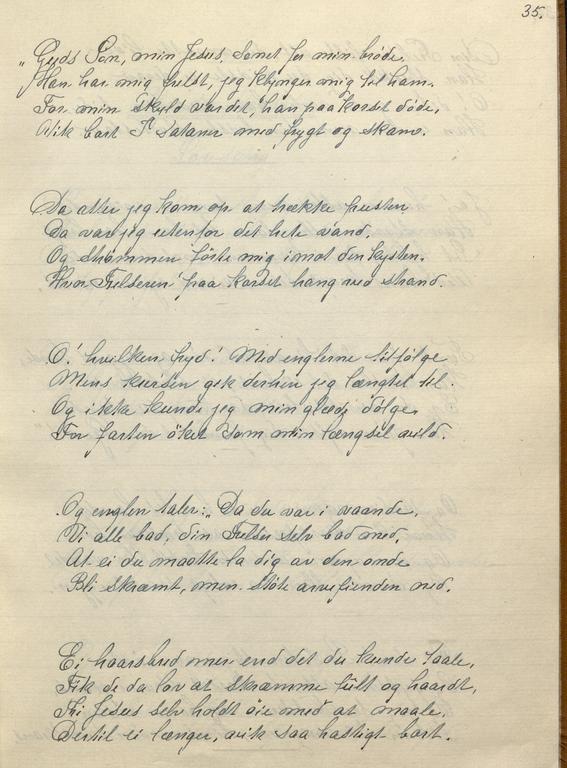 35.
„Guds Søn, min Jesus, sonet for min brøde.
Han har mig frelst, jeg klynger mig til ham.
For min skyld var det, han paa korset døde,
Vik bort Satan med frygt og skam.
Da atter jeg kom op at trække pusten
Da var jeg utenfor det hele vand.
Og strømmen førte mig imot den kysten.
Hvor Frelseren paa korset hang ved strand.
O! hvilken fryd! Med englerne tilfølge
Mens kursen gik derhen jeg længtet til.
Og ikke kunde jeg min glæde dølge.
For farten øket som min længsel vild.
Og englen taler: „Da du var i vaande,
Vi alle bad, din Frelser selv bad med,
At ei du maatte la dig av den onde
Bli skræmt, men støte arvefienden ned.
Ei haarsbred mer end det du kunde taale,
Fik de da lov at skræmme fult og haardt,
Thi Jesus selv holdt øie med at maale.
Dertil ei længer, vik saa hastigt bort.